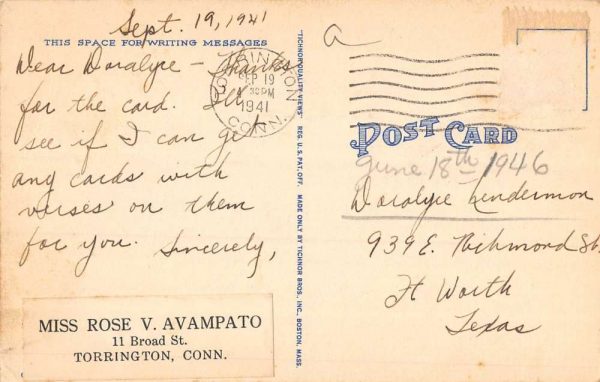 Sept. 19, 1941
THIS SPACE FOR WRITING MESSAGES
Dear Doralyre - Thanks
for the card. I'll
see if I can get
any cards with
verses on them
for you. Sincerely,
MISS ROSE V. AVAMPATO
11 Broad St.
TORRINGTON, CONN.
"TICHNOR QUALITY VIEWS" REG. U.S. PAT. OFF. MADE ONLY BY TICHNOR BROS., INC., BOSTON, MASS.
TORRINGTON
SEP 19
PM
1941
CONN.
a
POST CARD
June 18th 1946
Doralyre Lendermon
939 E. Richmond St.
Ft Worth
Texas